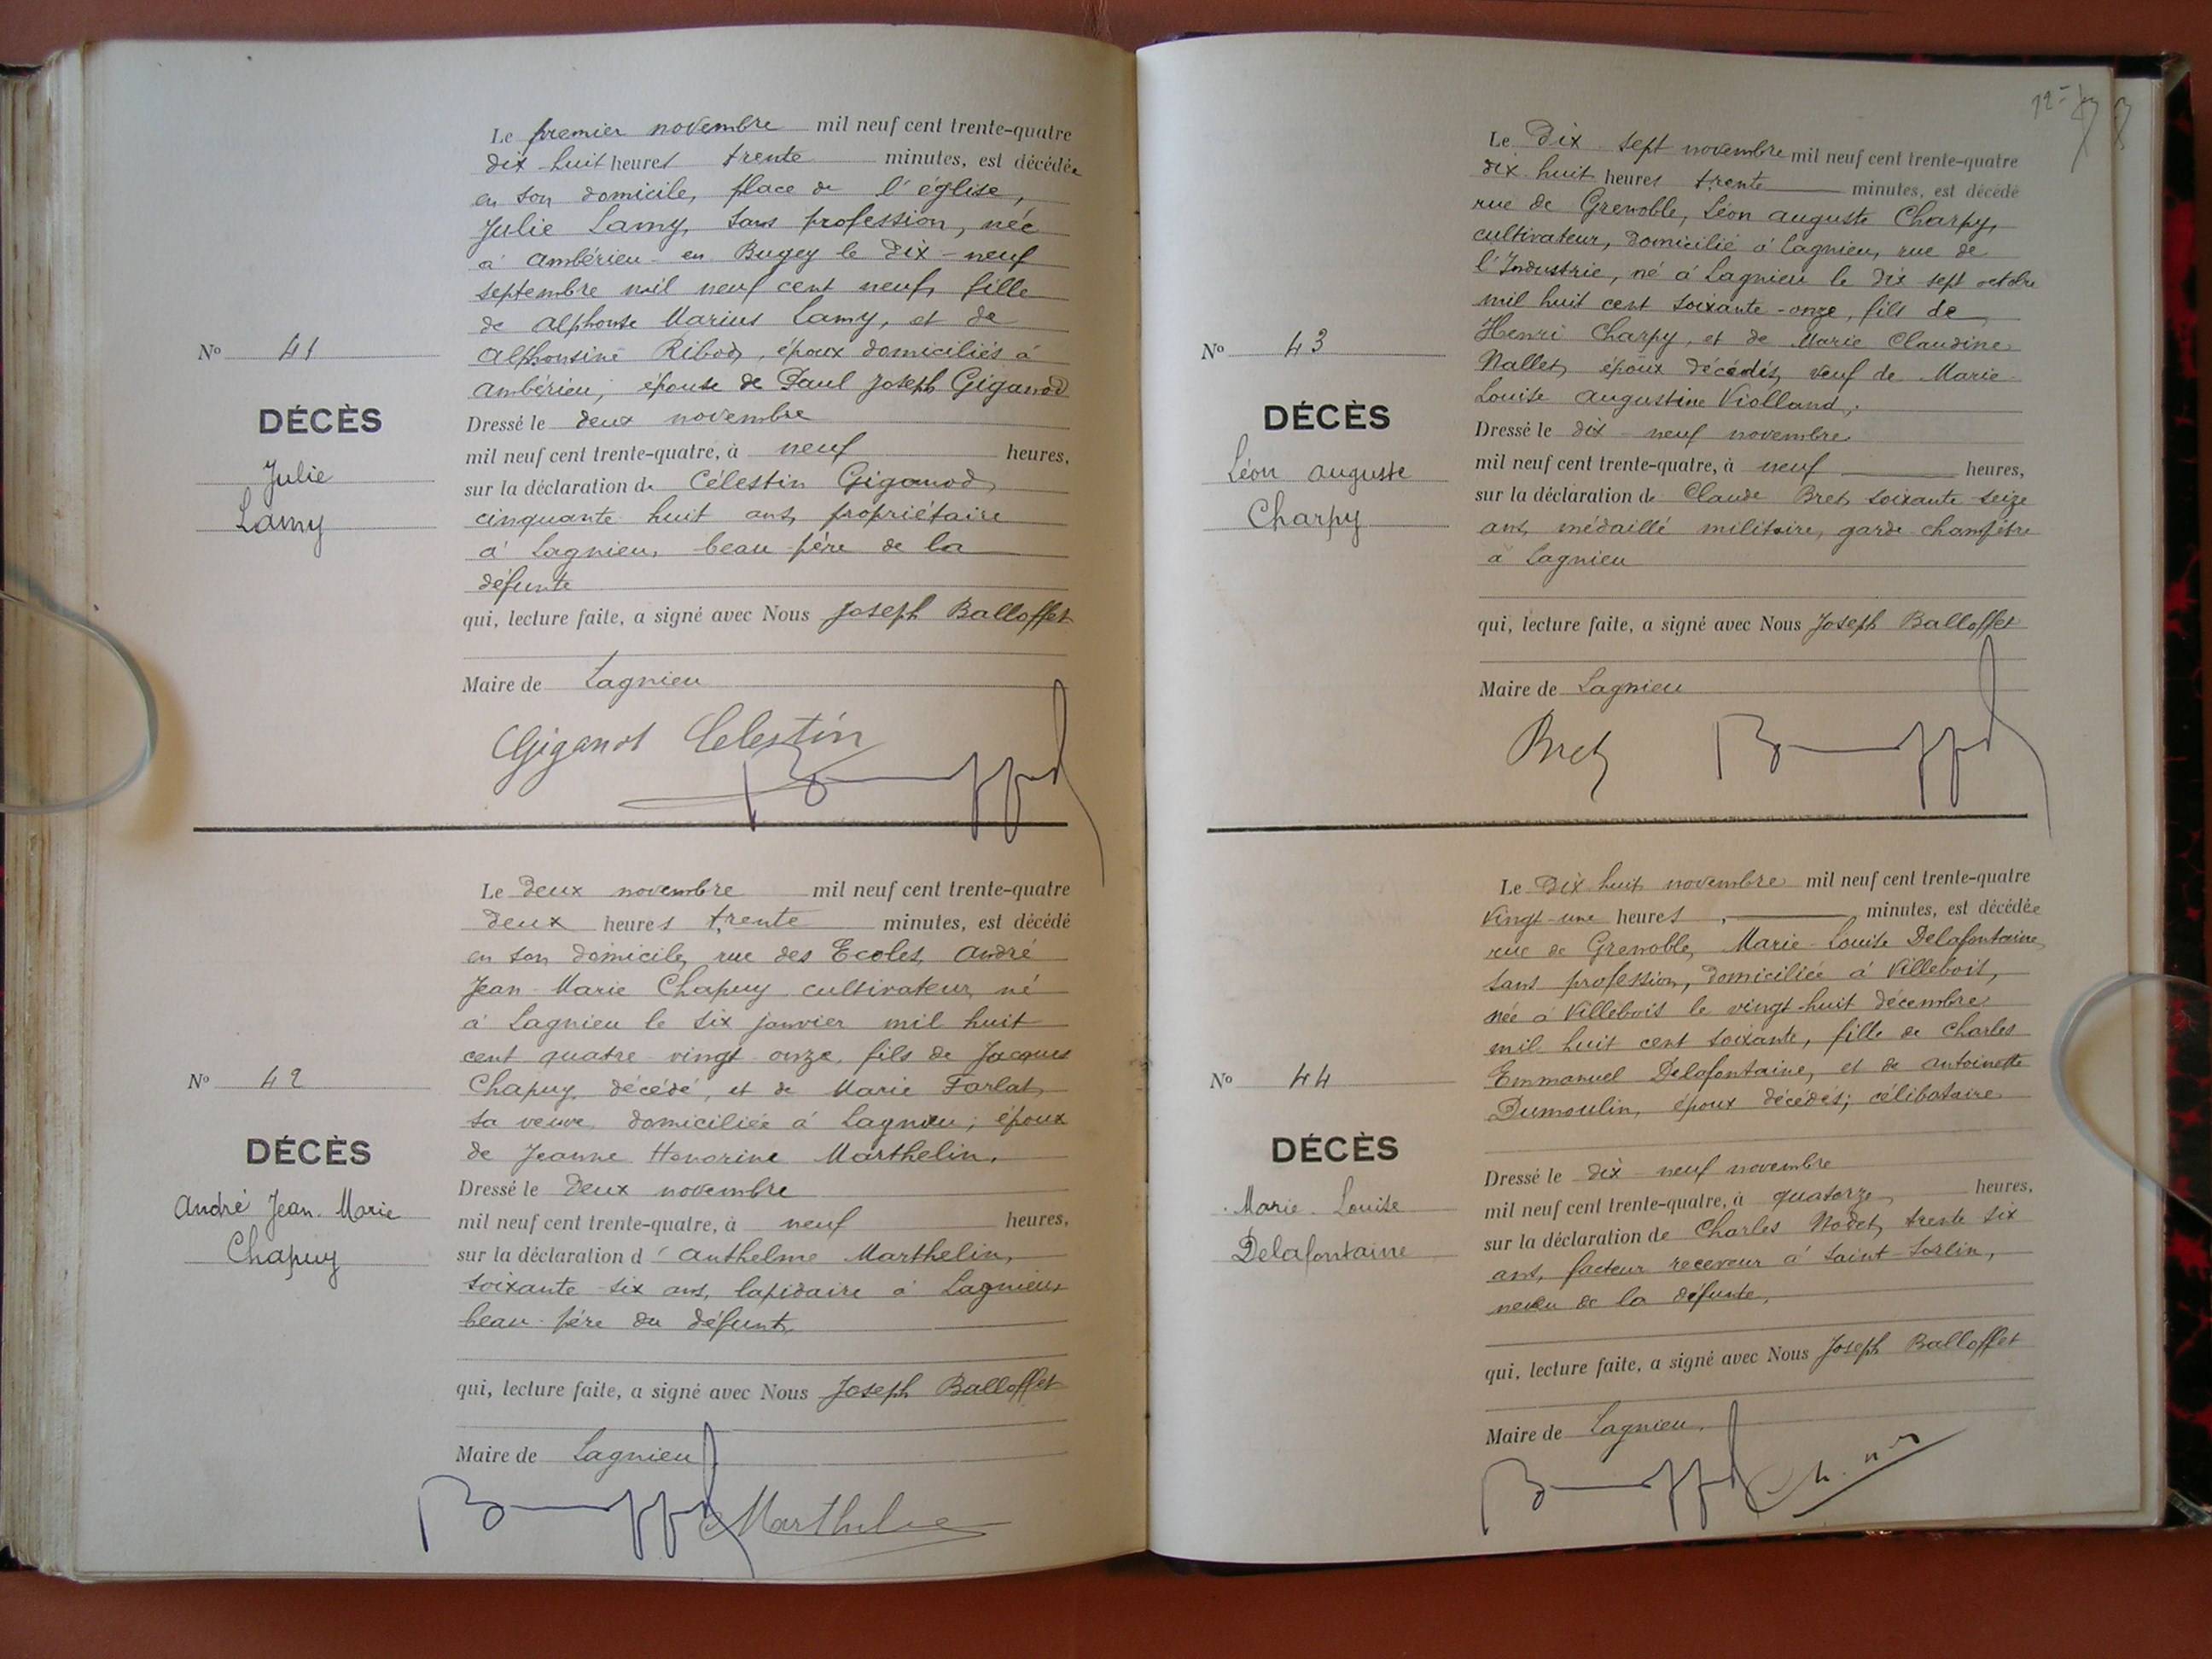 Le premier novembre mil neuf cent trente-quatre
dix huit heures trente minutes, est décédée
en son domicile, place de l'église,
Julie Lamy, sans profession, née
à Ambérieu-en Bugey le dix-neuf
septembre mil neuf cent neuf, fille
de Alphonse Marius Lamy, et de
Alphonsine Ribod, époux domiciliés à
Ambérieu, épouse de Paul Joseph Giganod
Dressé le deux novembre
mil neuf cent trente-quatre, à neuf heures,
sur la déclaration de Célestin Giganod,
cinquante huit ans, propriétaire
à Lagnieu, beau-père de la
défunte
qui, lecture faite, a signé avec Nous Joseph Balloffet
Maire de Lagnieu
Giganod Celestin
No 41
DÉCÈS
Julie
Lamy
Le deux novembre mil neuf cent trente-quatre
deux heures trente minutes, est décédé
en son domicile, rue des Ecoles, André
Jean-Marie Chapuy cultivateur, né
à Lagnieu le six janvier mil huit
cent quatre-vingt-onze, fils de Jacques
Chapuy, décédé, et de Marie Farlat,
sa veuve, domiciliée à Lagnieu; époux
de Jeanne Honorine Marthelin.
Dressé le deux novembre
mil neuf cent trente-quatre, à neuf heures,
sur la déclaration d'Anthelme Marthelin,
soixante-six ans, lapidaire à Lagnieu,
beau-père du défunt,
qui, lecture faite, a signé avec Nous Joseph Balloffet
Maire de Lagnieu
Marthelin
No 42
DÉCÈS
André Jean-Marie
Chapuy
Le dix sept novembre mil neuf cent trente-quatre
dix huit heures trente minutes, est décédé
rue de Grenoble, Léon Auguste Charpy,
cultivateur, domicilié à Lagnieu, rue de
l'Industrie, né à Lagnieu le dix sept octobre
mil huit cent soixante-onze, fils de
Henri Charpy, et de Marie Claudine
Nallet, époux décédés, veuf de Marie-
Louise Augustine Violland.
Dressé le dix-neuf novembre
mil neuf cent trente-quatre, à neuf heures,
sur la déclaration de Claude Bret, soixante-seize
ans, médaillé militaire, garde-champêtre
à Lagnieu
qui, lecture faite, a signé avec Nous Joseph Balloffet
Maire de Lagnieu
Bret
No 43
DÉCÈS
Léon Auguste
Charpy
Le dix huit novembre mil neuf cent trente-quatre
vingt-une heures, minutes, est décédée
rue de Grenoble, Marie-Louise Delafontaine,
sans profession, domiciliée à Villebois,
née à Villebois le vingt-huit décembre
mil huit cent soixante, fille de Charles
Emmanuel Delafontaine, et de Antoinette
Dumoulin, époux décédés; célibataire
Dressé le dix-neuf novembre
mil neuf cent trente-quatre, à quatorze heures,
sur la déclaration de Charles Nodet, trente six
ans, facteur receveur à Saint-Sorlin,
neveu de la défunte,
qui, lecture faite, a signé avec Nous Joseph Balloffet
Maire de Lagnieu.
No 44
DÉCÈS
Marie-Louise
Delafontaine